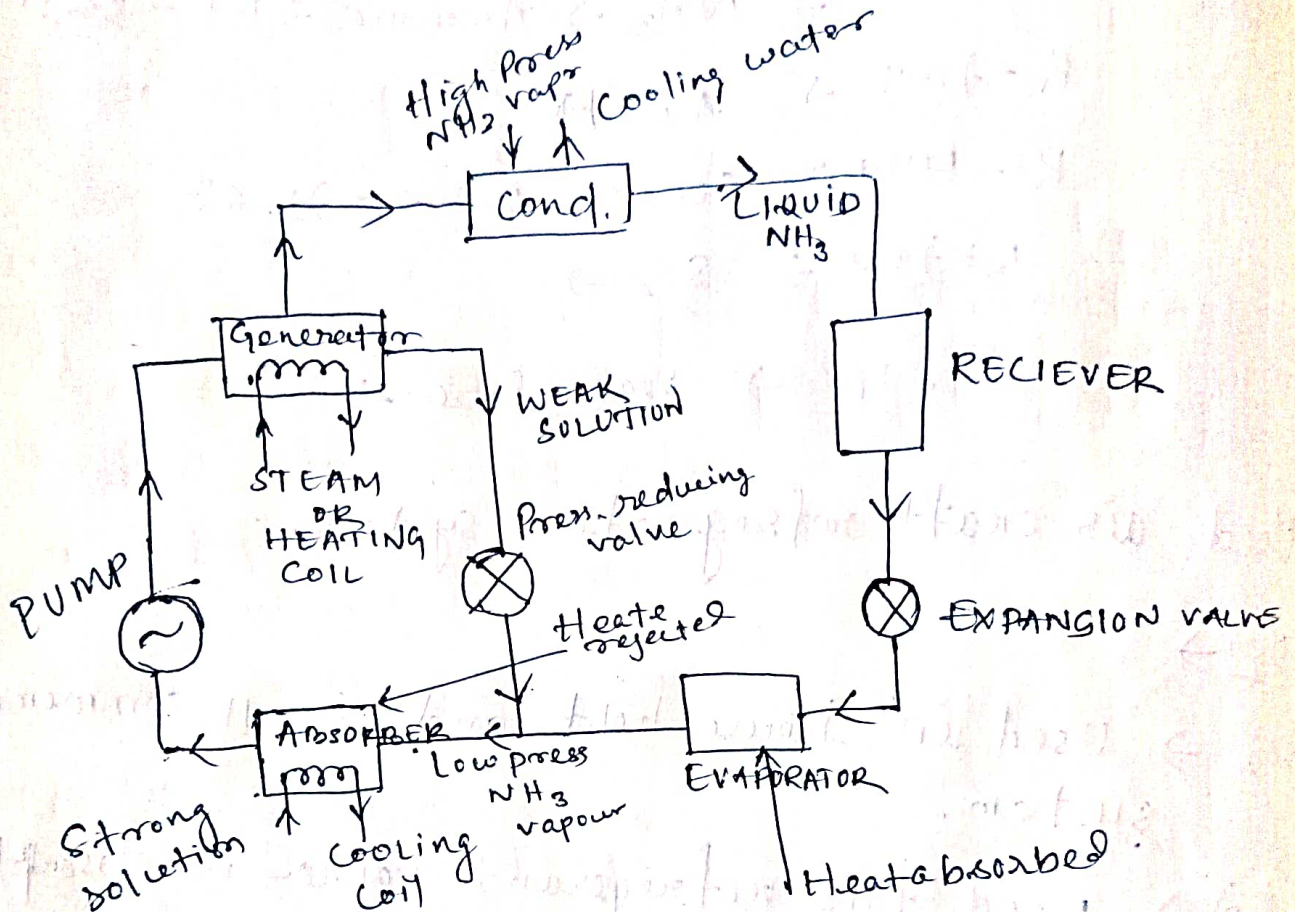 High Press
NH3 vapr
Cooling water
Cond.
LIQUID
NH3
Generator
RECIEVER
WEAK
SOLUTION
STEAM
OR
HEATING
COIL
Press. reducing
valve
PUMP
EXPANSION VALVE
Heate
rejected
ABSORBER
Low press
NH3
vapour
EVAPORATOR
Strong
solution
Cooling
Coil
Heat absorbed